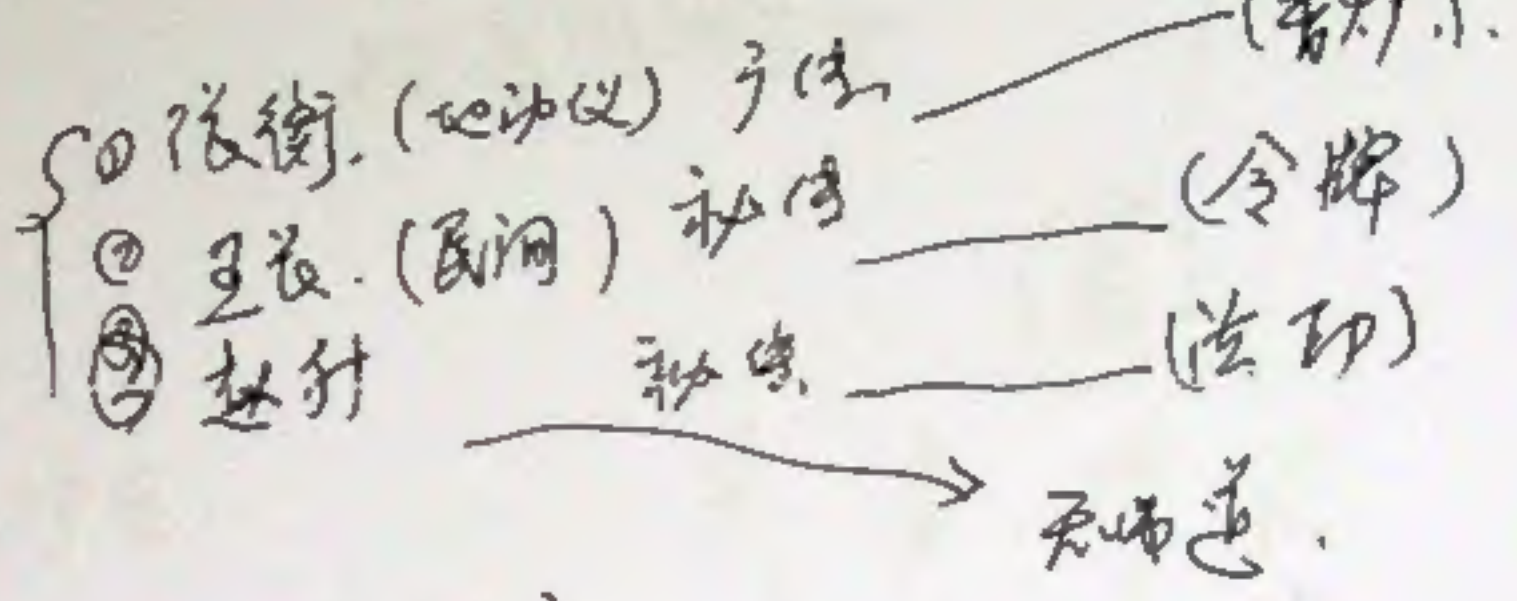 ① 张衡.(地动仪) 广传 —— (香火).
② 王长.(民间) 秘传 —— (令牌)
③ 赵升 秘传 —— (法印)
→ 天师道.